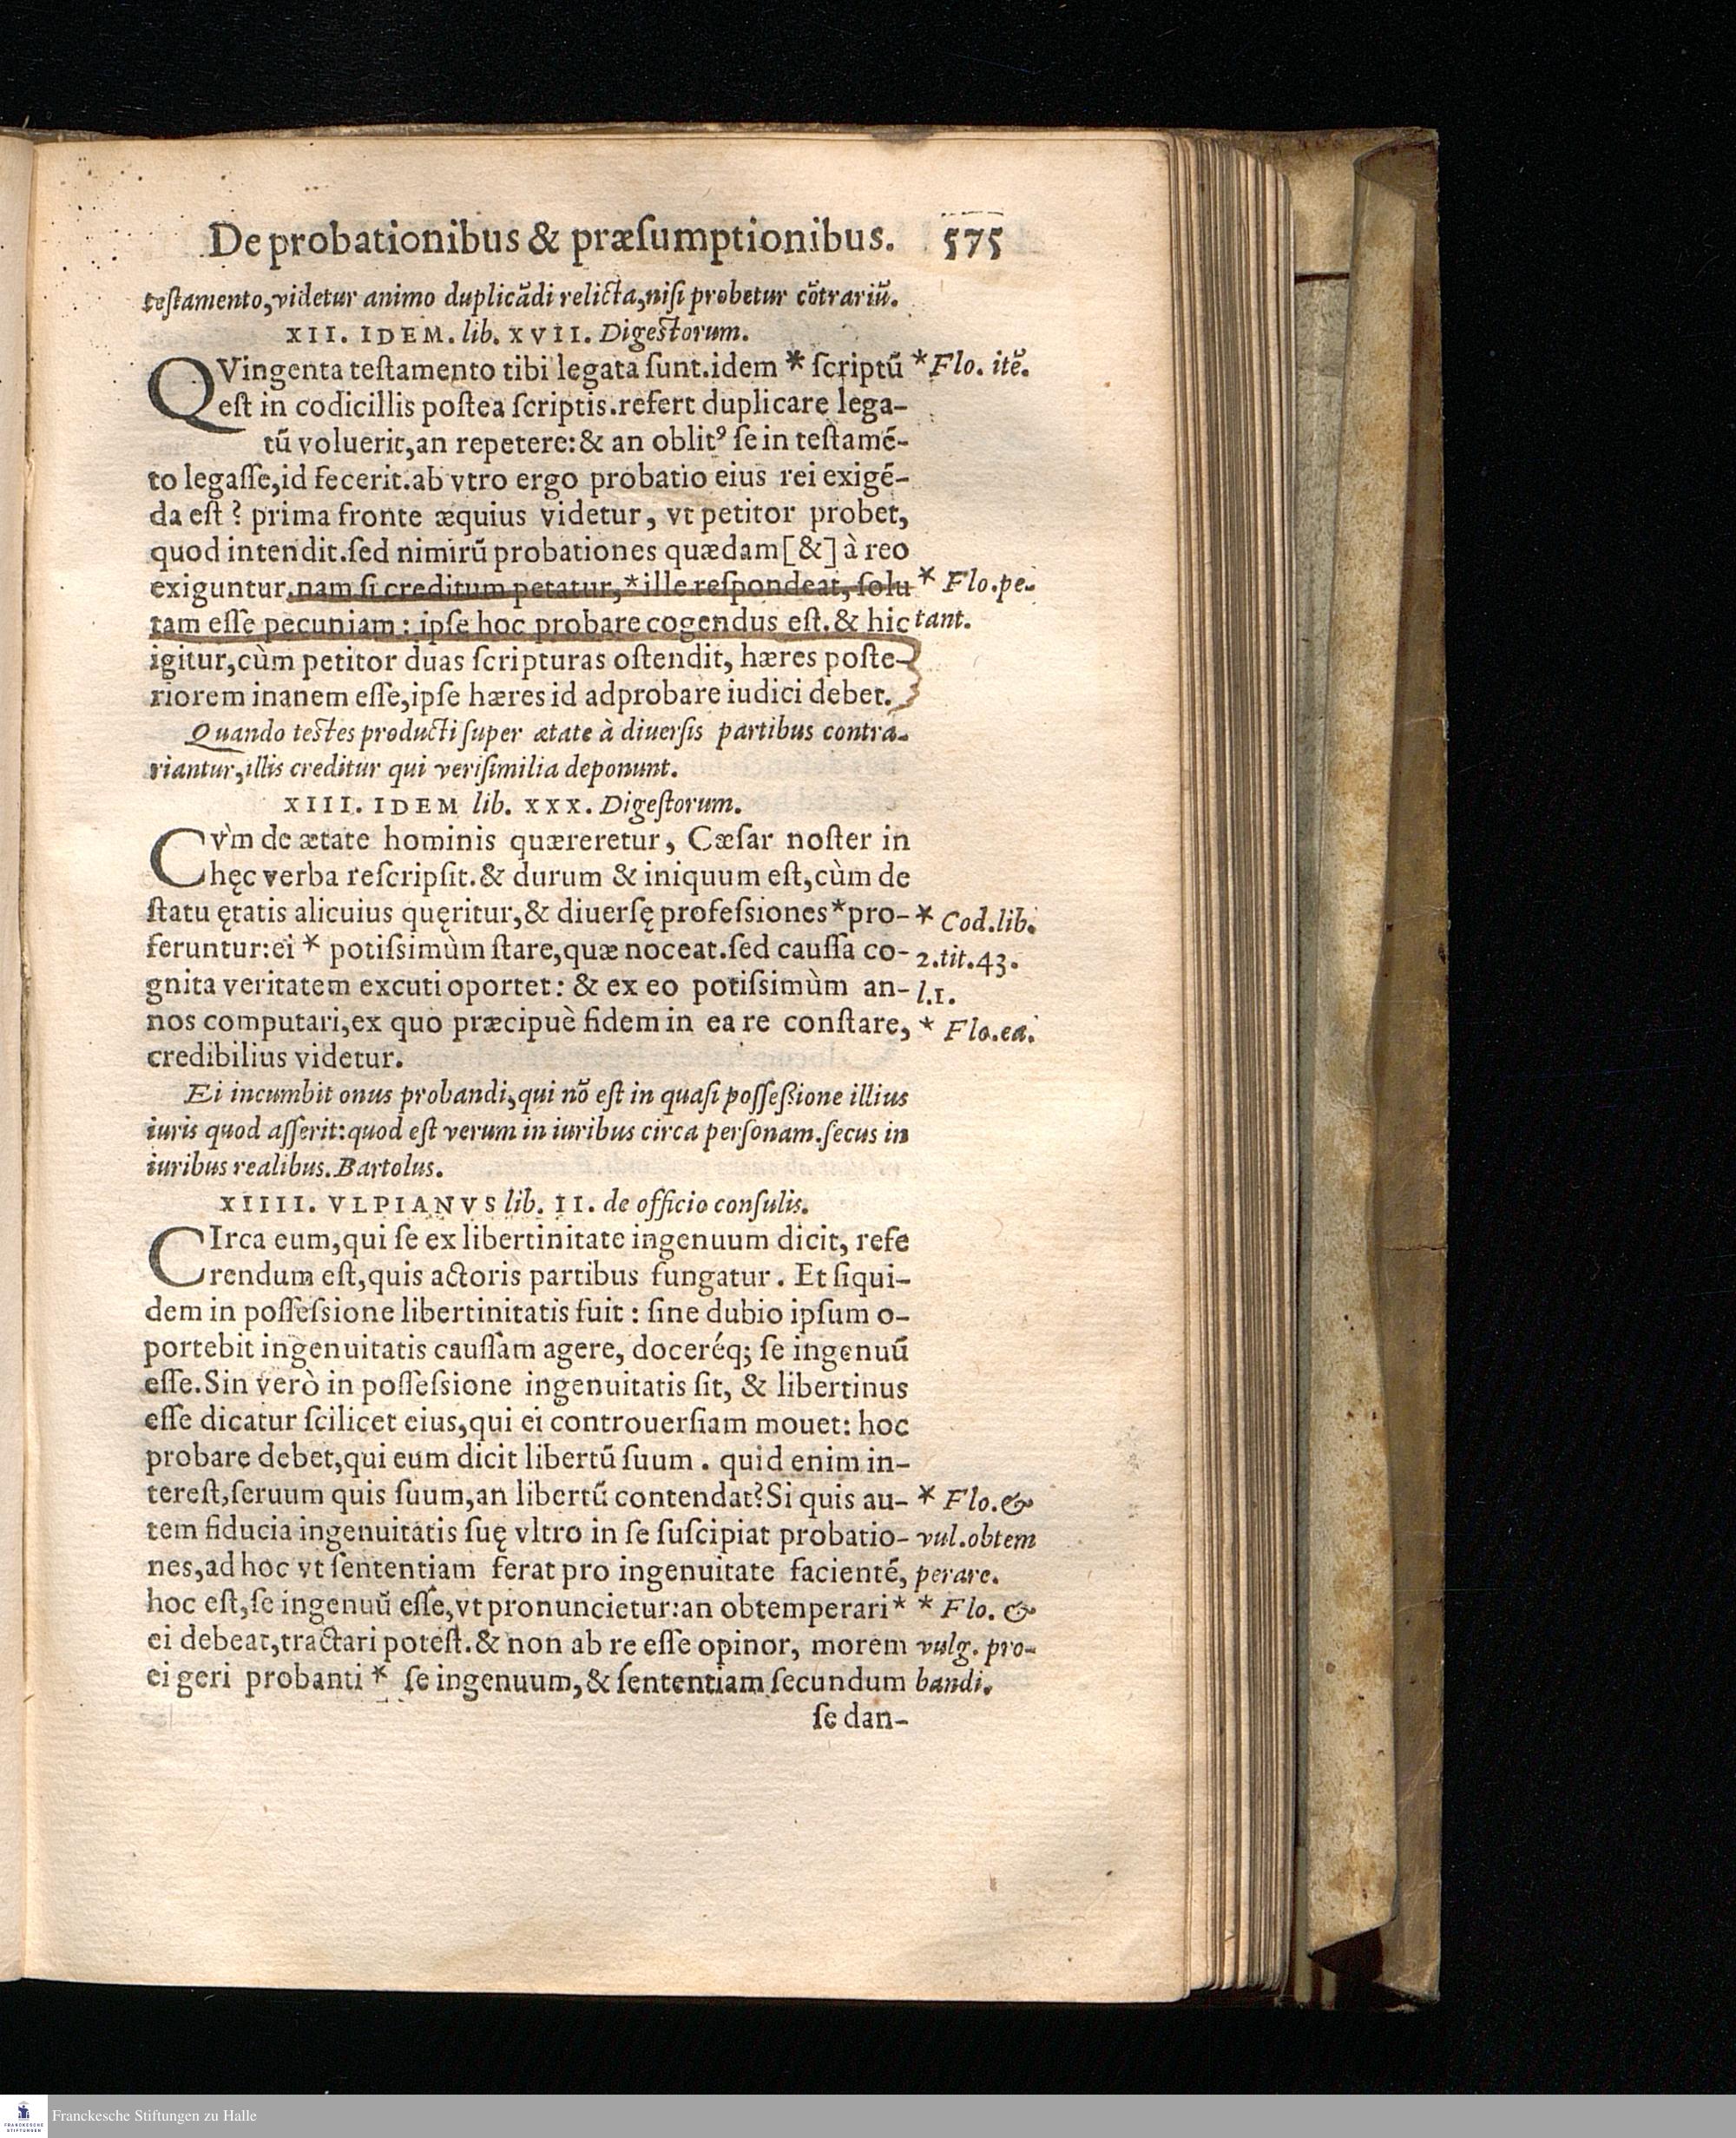 De probationibus & præſumptionibus. 575
teſtamento, videtur animo duplicãdi relicta, niſi probetur cõtrariũ.
XII. IDEM. lib. XVII. Digeſtorum.
QVingenta teſtamento tibi legata ſunt. idem * ſcriptũ * Flo. itẽ.
eſt in codicillis poſtea ſcriptis. refert duplicare lega-
tũ voluerit, an repetere: & an oblitꝰ ſe in teſtamẽ-
to legaſſe, id fecerit. ab vtro ergo probatio eius rei exigẽ-
da eſt? prima fronte æquius videtur, vt petitor probet,
quod intendit. ſed nimirũ probationes quædam [&] à reo
exiguntur. nam ſi creditum petatur, * ille reſpondeat, ſolu * Flo. pe-
tam eſſe pecuniam: ipſe hoc probare cogendus eſt. & hic tant.
igitur, cùm petitor duas ſcripturas oſtendit, hæres poſte-
riorem inanem eſſe, ipſe hæres id adprobare iudici debet.
Quando teſtes producti ſuper ætate à diuerſis partibus contra-
riantur, illis creditur qui veriſimilia deponunt.
XIII. IDEM lib. XXX. Digeſtorum.
CVm̀ de ætate hominis quæreretur, Cæſar noſter in
hęc verba reſcripſit. & durum & iniquum eſt, cùm de
ſtatu ętatis alicuius quęritur, & diuerſę profeſsiones * pro- * Cod. lib.
feruntur: ei * potiſsimùm ſtare, quæ noceat. ſed cauſſa co- 2. tit. 43.
gnita veritatem excuti oportet: & ex eo potiſsimùm an- l. 1.
nos computari, ex quo præcipuè fidem in ea re conſtare, * Flo. ea.
credibilius videtur.
Ei incumbit onus probandi, qui nõ eſt in quaſi poſſeſsione illius
iuris quod aſſerit: quod eſt verum in iuribus circa perſonam. ſecus in
iuribus realibus. Bartolus.
XIIII. VLPIANVS lib. II. de officio conſulis.
CIrca eum, qui ſe ex libertinitate ingenuum dicit, refe
rendum eſt, quis actoris partibus fungatur. Et ſiqui-
dem in poſſeſsione libertinitatis fuit: ſine dubio ipſum o-
portebit ingenuitatis cauſſam agere, docéreq; ſe ingenuũ
eſſe. Sin verò in poſſeſsione ingenuitatis ſit, & libertinus
eſſe dicatur ſcilicet eius, qui ei controuerſiam mouet: hoc
probare debet, qui eum dicit libertũ ſuum. quid enim in-
tereſt, ſeruum quis ſuum, an libertũ contendat? Si quis au- * Flo. &
tem fiducia ingenuitatis ſuę vltro in ſe ſuſcipiat probatio- vul. obtem
nes, ad hoc vt ſententiam ferat pro ingenuitate facientẽ, perare.
hoc eſt, ſe ingenuũ eſſe, vt pronuncietur: an obtemperari * * Flo. &
ei debeat, tractari poteſt. & non ab re eſſe opinor, morem vulg. pro-
ei geri probanti * ſe ingenuum, & ſententiam ſecundum bandi.
ſe dan-
Franckesche Stiftungen zu Halle
FRANCKESCHE
STIFTUNGEN